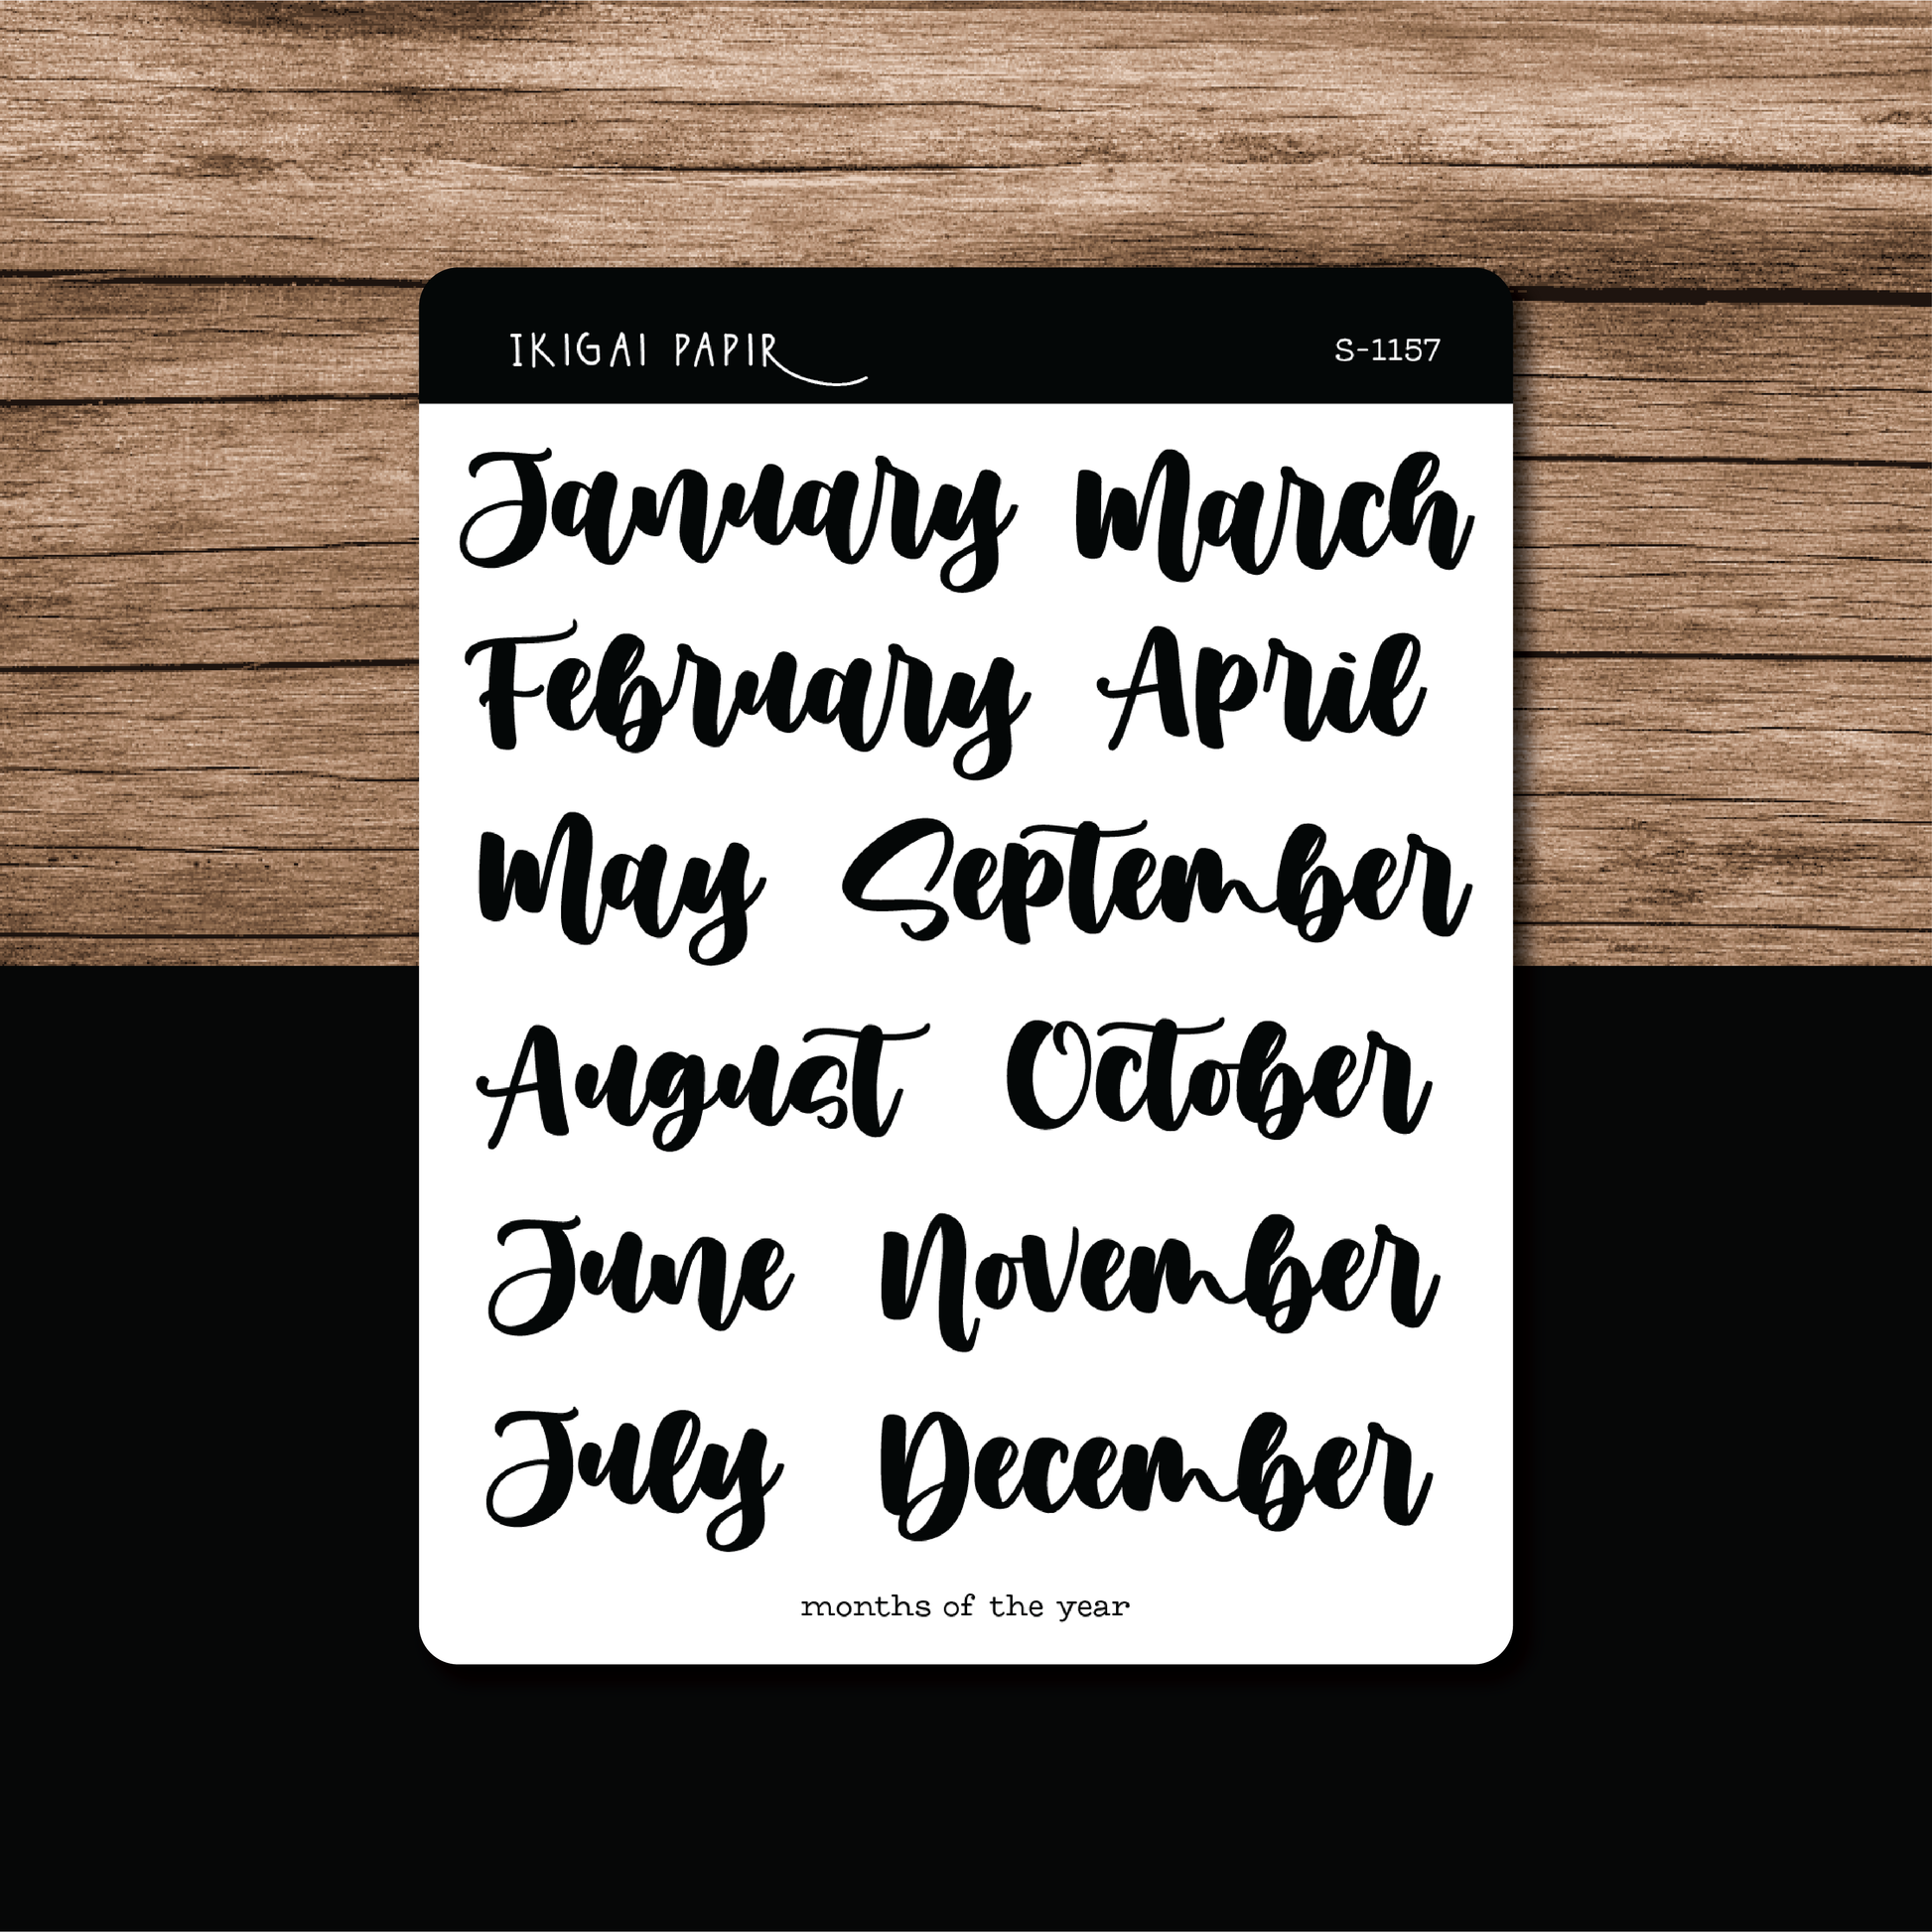 IKIGAI PAPIR S-1157
January March
February April
May September
August October
June November
July December
months of the year